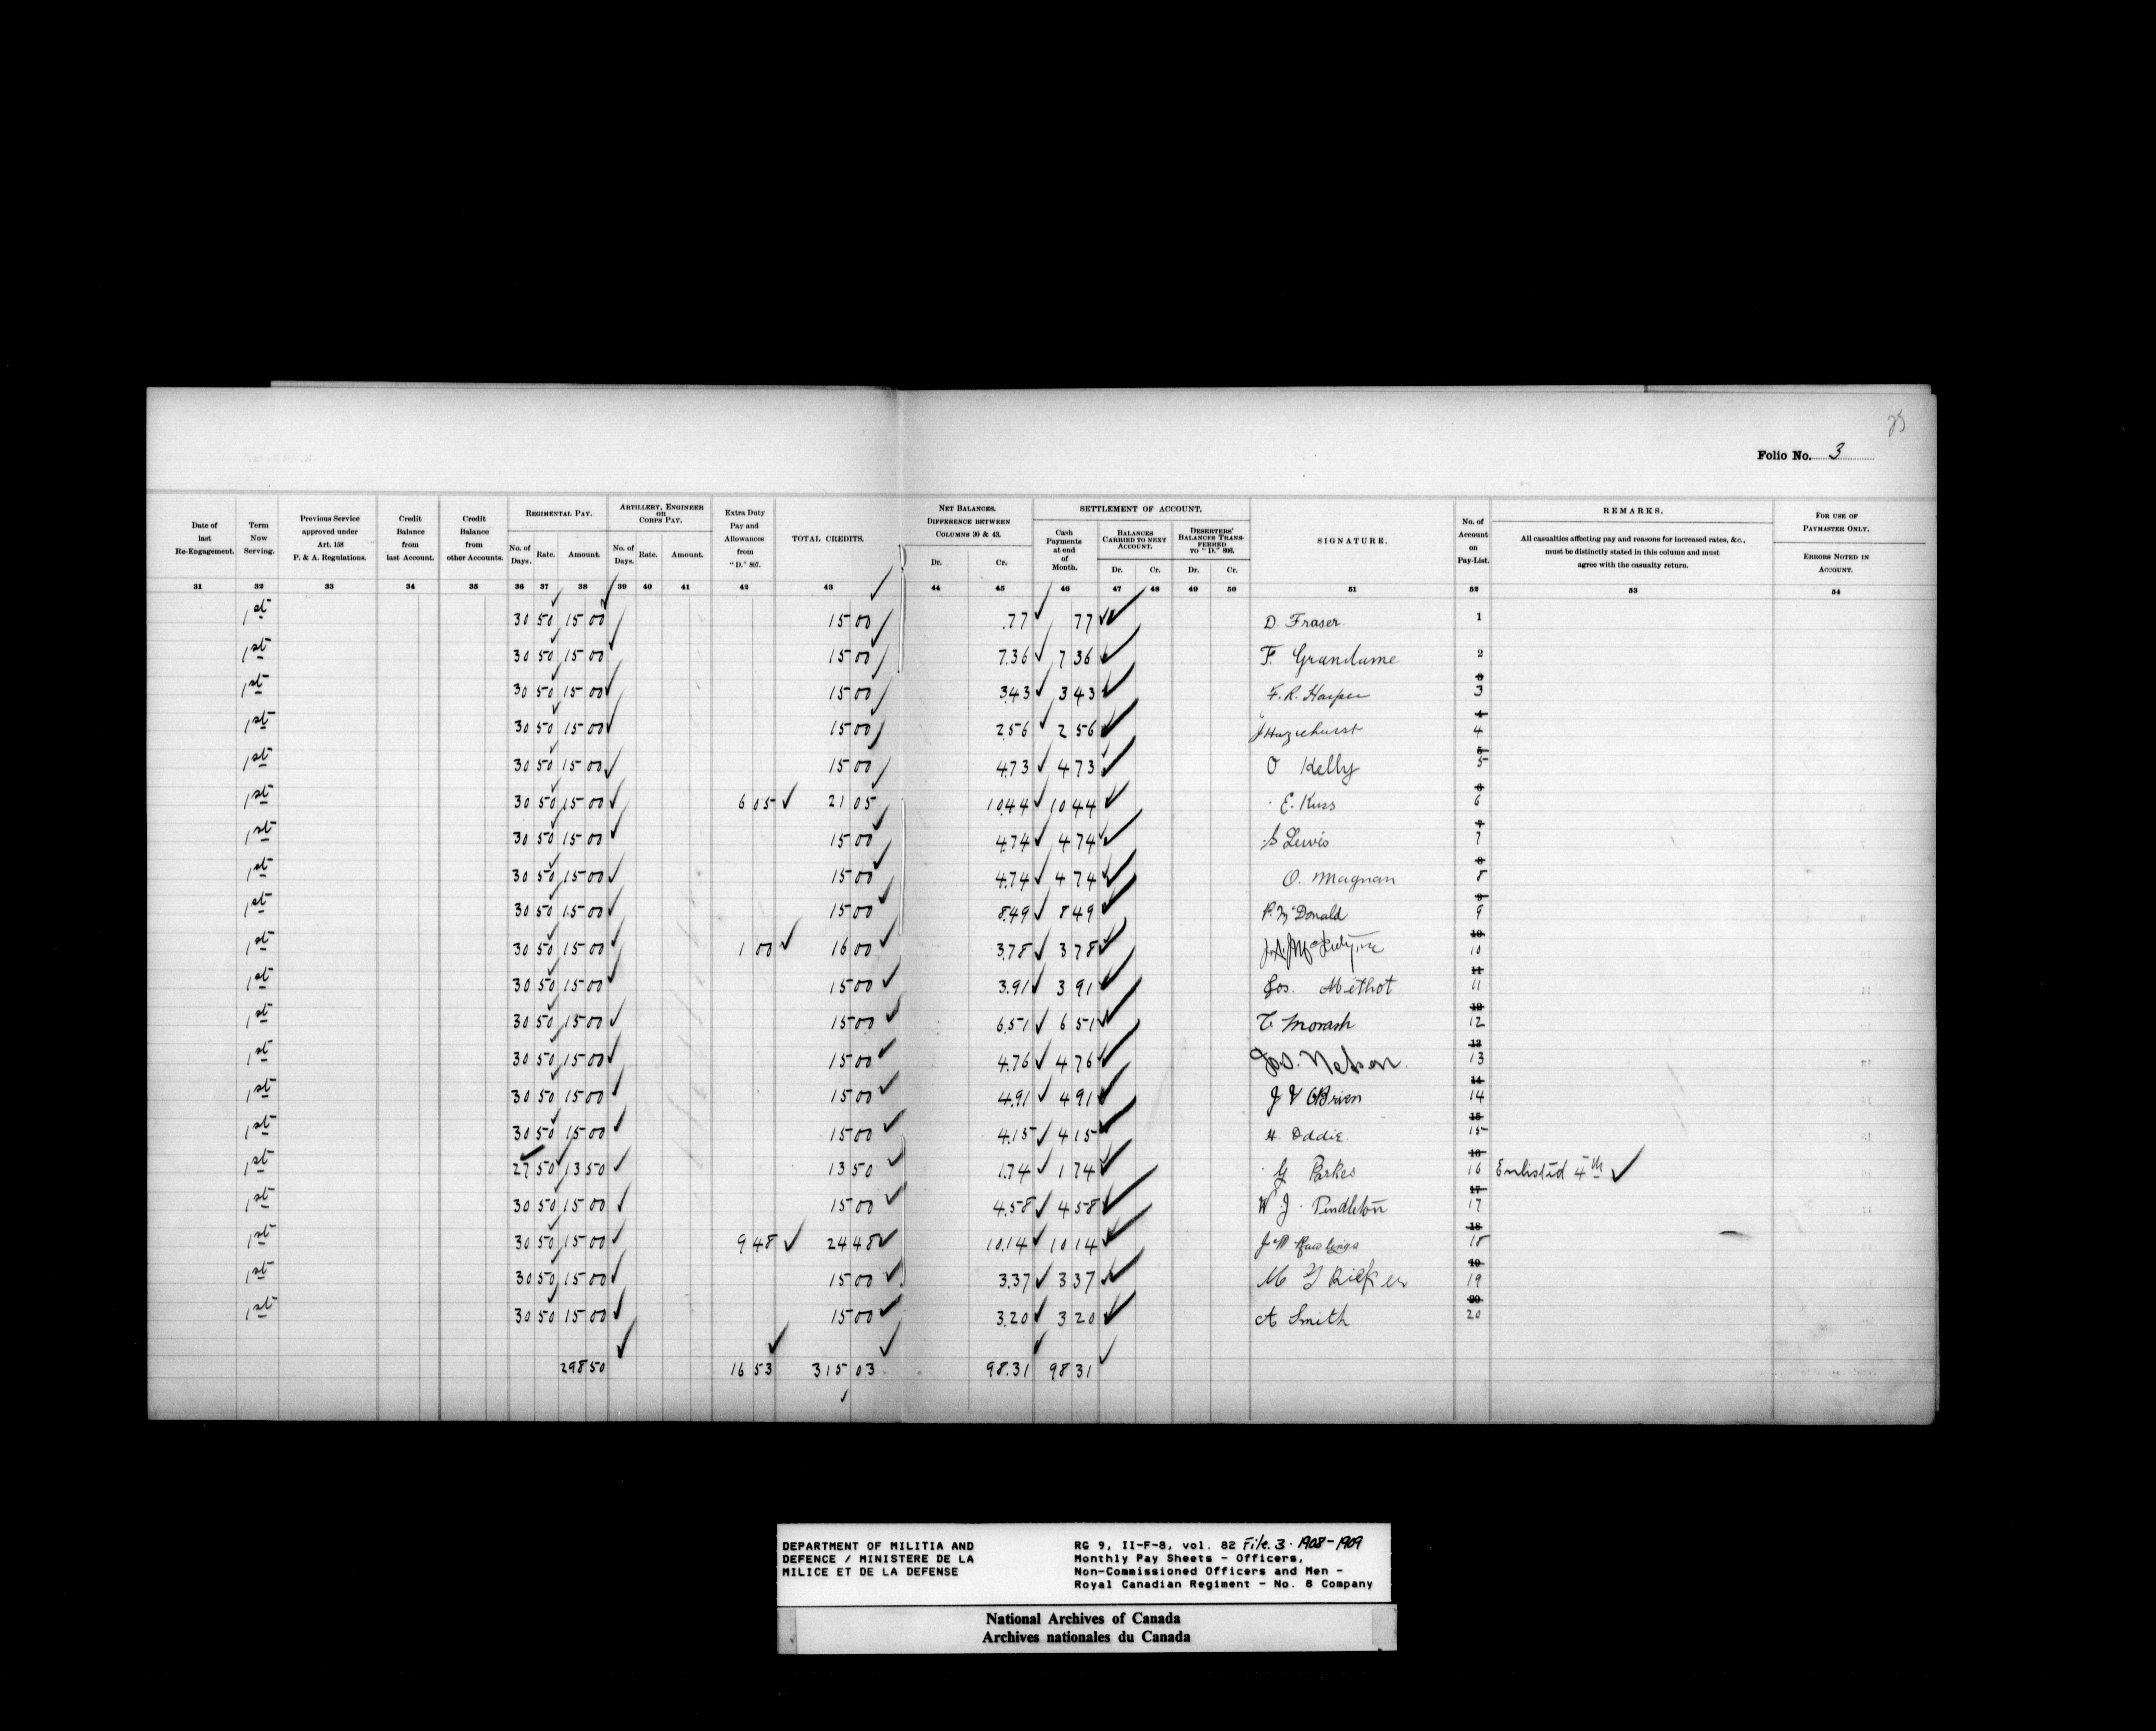 25
Folio No. 3
Date of last Re-Engagement. Term Now Serving. Previous Service approved under Art. 158 P. & A. Regulations. Credit Balance from last Account. Credit Balance from other Accounts. REGIMENTAL PAY. No. of Days. Rate. Amount. ARTILLERY, ENGINEER OR CORPS PAY. No. of Days. Rate. Amount. Extra Duty Pay and Allowances from "D." 807. TOTAL CREDITS. NET BALANCES. DIFFERENCE BETWEEN COLUMNS 30 & 43. Dr. Cr. SETTLEMENT OF ACCOUNT. Cash Payments at end of Month. BALANCES CARRIED TO NEXT ACCOUNT. Dr. Cr. DESERTERS' BALANCES TRANSFERRED TO "D." 806. Dr. Cr. SIGNATURE. No. of Account on Pay-List. REMARKS. All casualties affecting pay and reasons for increased rates, &c., must be distinctly stated in this column and must agree with the casualty return. FOR USE OF PAYMASTER ONLY. ERRORS NOTED IN ACCOUNT.
31 32 33 34 35 36 37 38 39 40 41 42 43 44 45 46 47 48 49 50 51 52 53 54
1st 30 50 15 00 15 00 .77 77 D. Fraser 1
1st 30 50 15 00 15 00 7.36 7 36 F. Grandame 2
1st 30 50 15 00 15 00 3.43 3 43 F. R. Harper 3 3
1st 30 50 15 00 15 00 2.56 2 56 J Hazlehurst 4 4
1st 30 50 15 00 15 00 4.73 4 73 O Kelly 5 5
1st 30 50 15 00 6 05 21 05 10.44 10 44 E. Kuss 6 6
1st 30 50 15 00 15 00 4.74 4 74 S Lewis 7 7
1st 30 50 15 00 15 00 4.74 4 74 O. Magnan 8 8
1st 30 50 15 00 15 00 8.49 8 49 P. McDonald 9 9
1st 30 50 15 00 1 00 16 00 3.78 3 78 10 10
1st 30 50 15 00 15 00 3.91 3 91 Jos. Methot 11 11
1st 30 50 15 00 15 00 6.51 6 51 T Morash 12 12
1st 30 50 15 00 15 00 4.76 4 76 Jos. Nelson 13 13
1st 30 50 15 00 15 00 4.91 4 91 J V OBrien 14 14
1st 30 50 15 00 15 00 4.15 4 15 H. Oddie 15 15
1st 27 50 13 50 13 50 1.74 1 74 G Parkes 16 16 Enlisted 4th
1st 30 50 15 00 15 00 4.58 4 58 W J. Pendleton 17 17
1st 30 50 15 00 9 48 24 48 10.14 10 14 J W Rawlings 18 18
1st 30 50 15 00 15 00 3.37 3 37 M G Ricker 19 19
1st 30 50 15 00 15 00 3.20 3 20 A Smith 20 20
298 50 16 53 315 03 98.31 98 31
DEPARTMENT OF MILITIA AND
DEFENCE / MINISTERE DE LA
MILICE ET DE LA DEFENSE
RG 9, II-F-8, vol. 82 File. 3. 1908-1909
Monthly Pay Sheets - Officers,
Non-Commissioned Officers and Men -
Royal Canadian Regiment - No. 8 Company
National Archives of Canada
Archives nationales du Canada